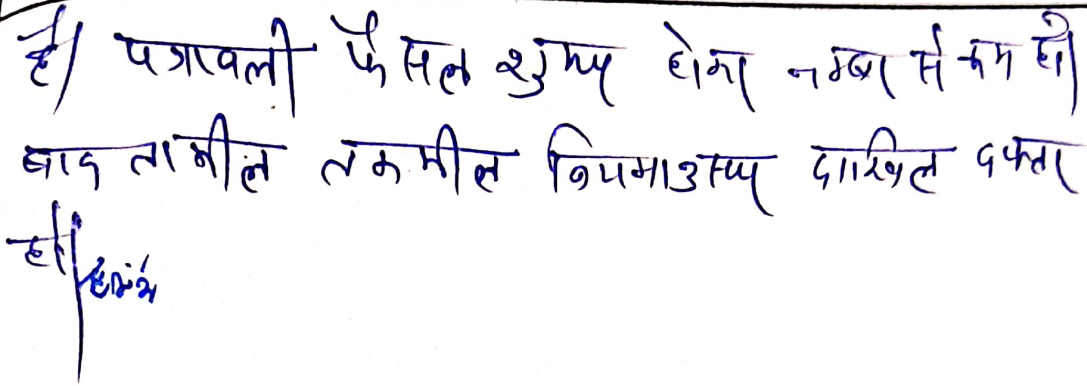 है। पत्रावली फैसल शुमार होकर नम्बर से कम हो।
बाद तामील तकमील नियमानुसार दाखिल दफ्तर
हो।